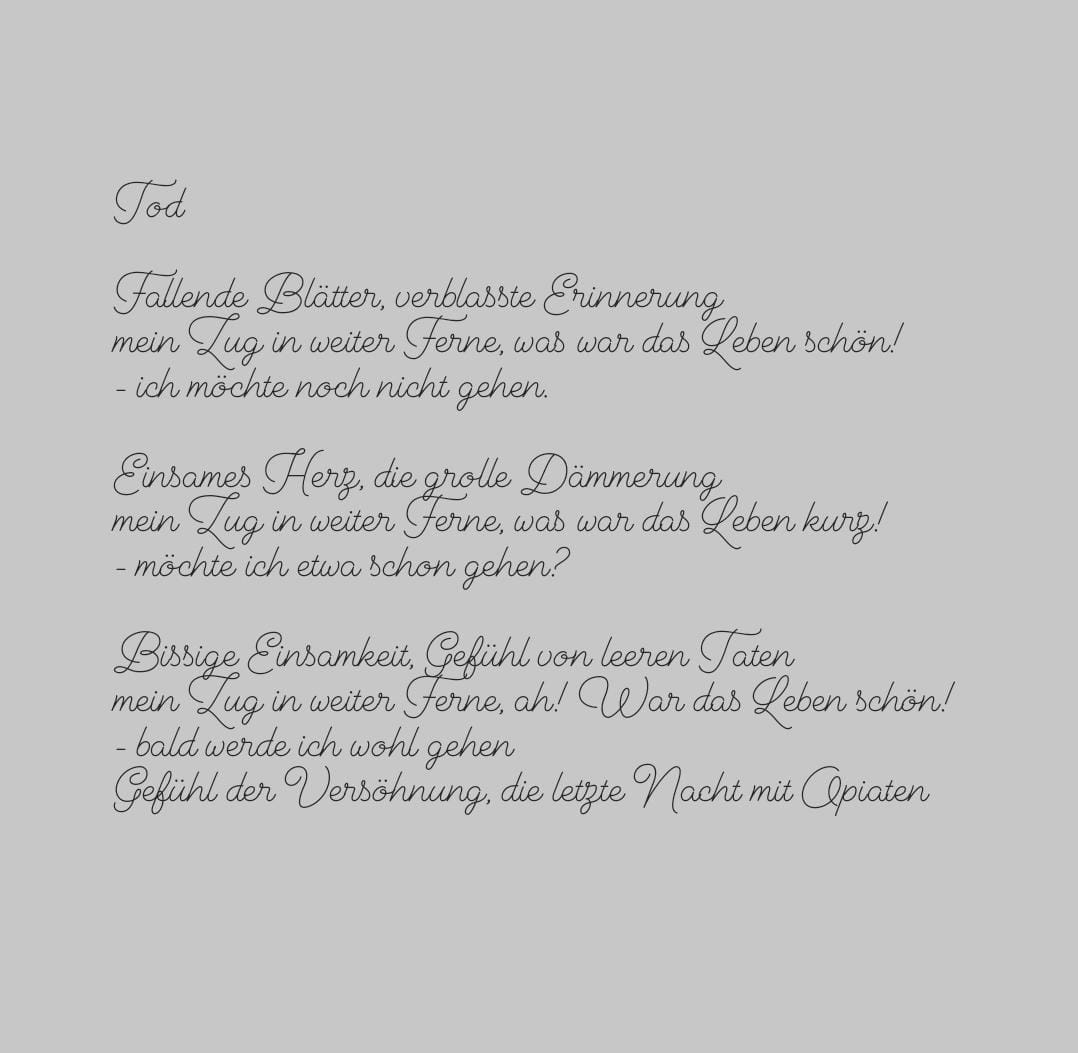 Tod
Fallende Blätter, verblasste Erinnerung
mein Zug in weiter Ferne, was war das Leben schön!
- ich möchte noch nicht gehen.
Einsames Herz, die grolle Dämmerung
mein Zug in weiter Ferne, was war das Leben kurz!
- möchte ich etwa schon gehen?
Bissige Einsamkeit, Gefühl von leeren Taten
mein Zug in weiter Ferne, ah! War das Leben schön!
- bald werde ich wohl gehen
Gefühl der Versöhnung, die letzte Nacht mit Opiaten